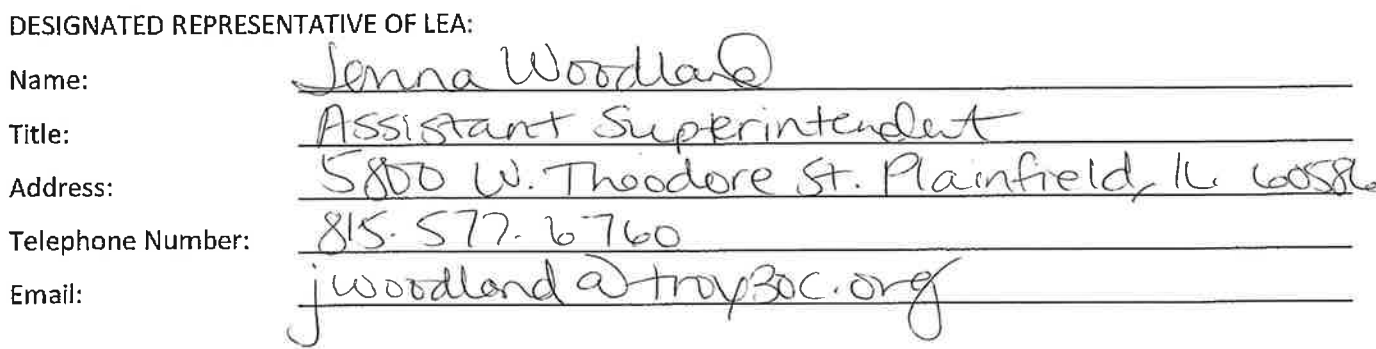 DESIGNATED REPRESENTATIVE OF LEA:
Name: Jenna Woodland
Title: Assistant Superintendent
Address: 5800 W. Theodore St. Plainfield, IL 60586
Telephone Number: 815.577.6760
Email: jwoodland@troy30c.org